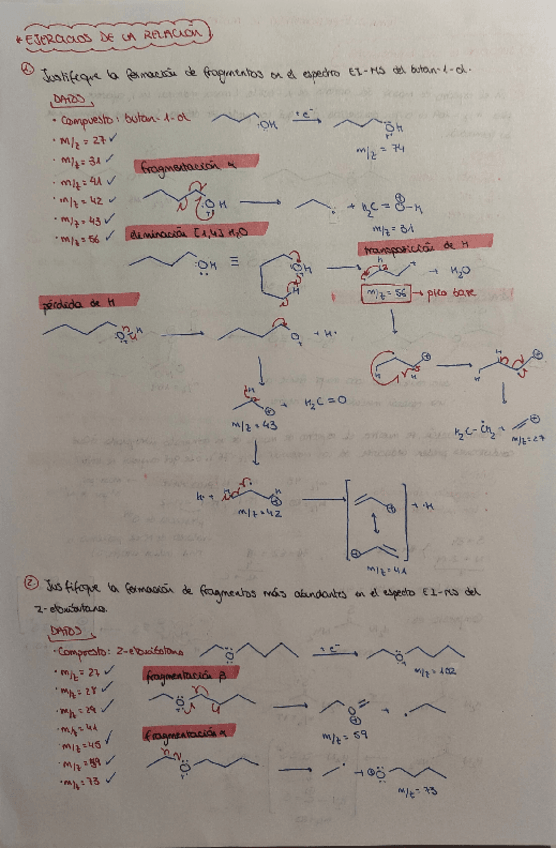 * EJERCICIOS DE LA RELACIÓN
① Justifique la formación de fragmentos en el espectro EI-MS del butan-1-ol.
DATOS
• Compuesto: butan-1-ol
• m/z = 27 ✓
• m/z = 31 ✓
• m/z = 41 ✓
• m/z = 42 ✓
• m/z = 43 ✓
• m/z = 56 ✓
OH
-1e⁻
ÖH
m/z = 74
fragmentación α
OH
+ H₂C = O-H
m/z = 31
eliminación [1,4] H₂O
OH ≡
OH
transposición de H
H
+ H₂O
m/z = 56 → pico base
pérdida de H
H
+ H·
H
m/z = 43
+ H₂C = O
H
H
H₂C-CH₂
m/z = 27
H· +
H
H
m/z = 42
m/z = 41
+ ·H
② Justifique la formación de fragmentos más abundantes en el espectro EI-MS del
2-etoxibutano.
DATOS
• Compuesto: 2-etoxibutano
• m/z = 27 ✓
• m/z = 28 ✓
• m/z = 29 ✓
• m/z = 41
• m/z = 45 ✓
• m/z = 59 ✓
• m/z = 73 ✓
O
-1e⁻
O
m/z = 102
fragmentación β
O
O
+
m/z = 59
fragmentación α
O
+ O
m/z = 73